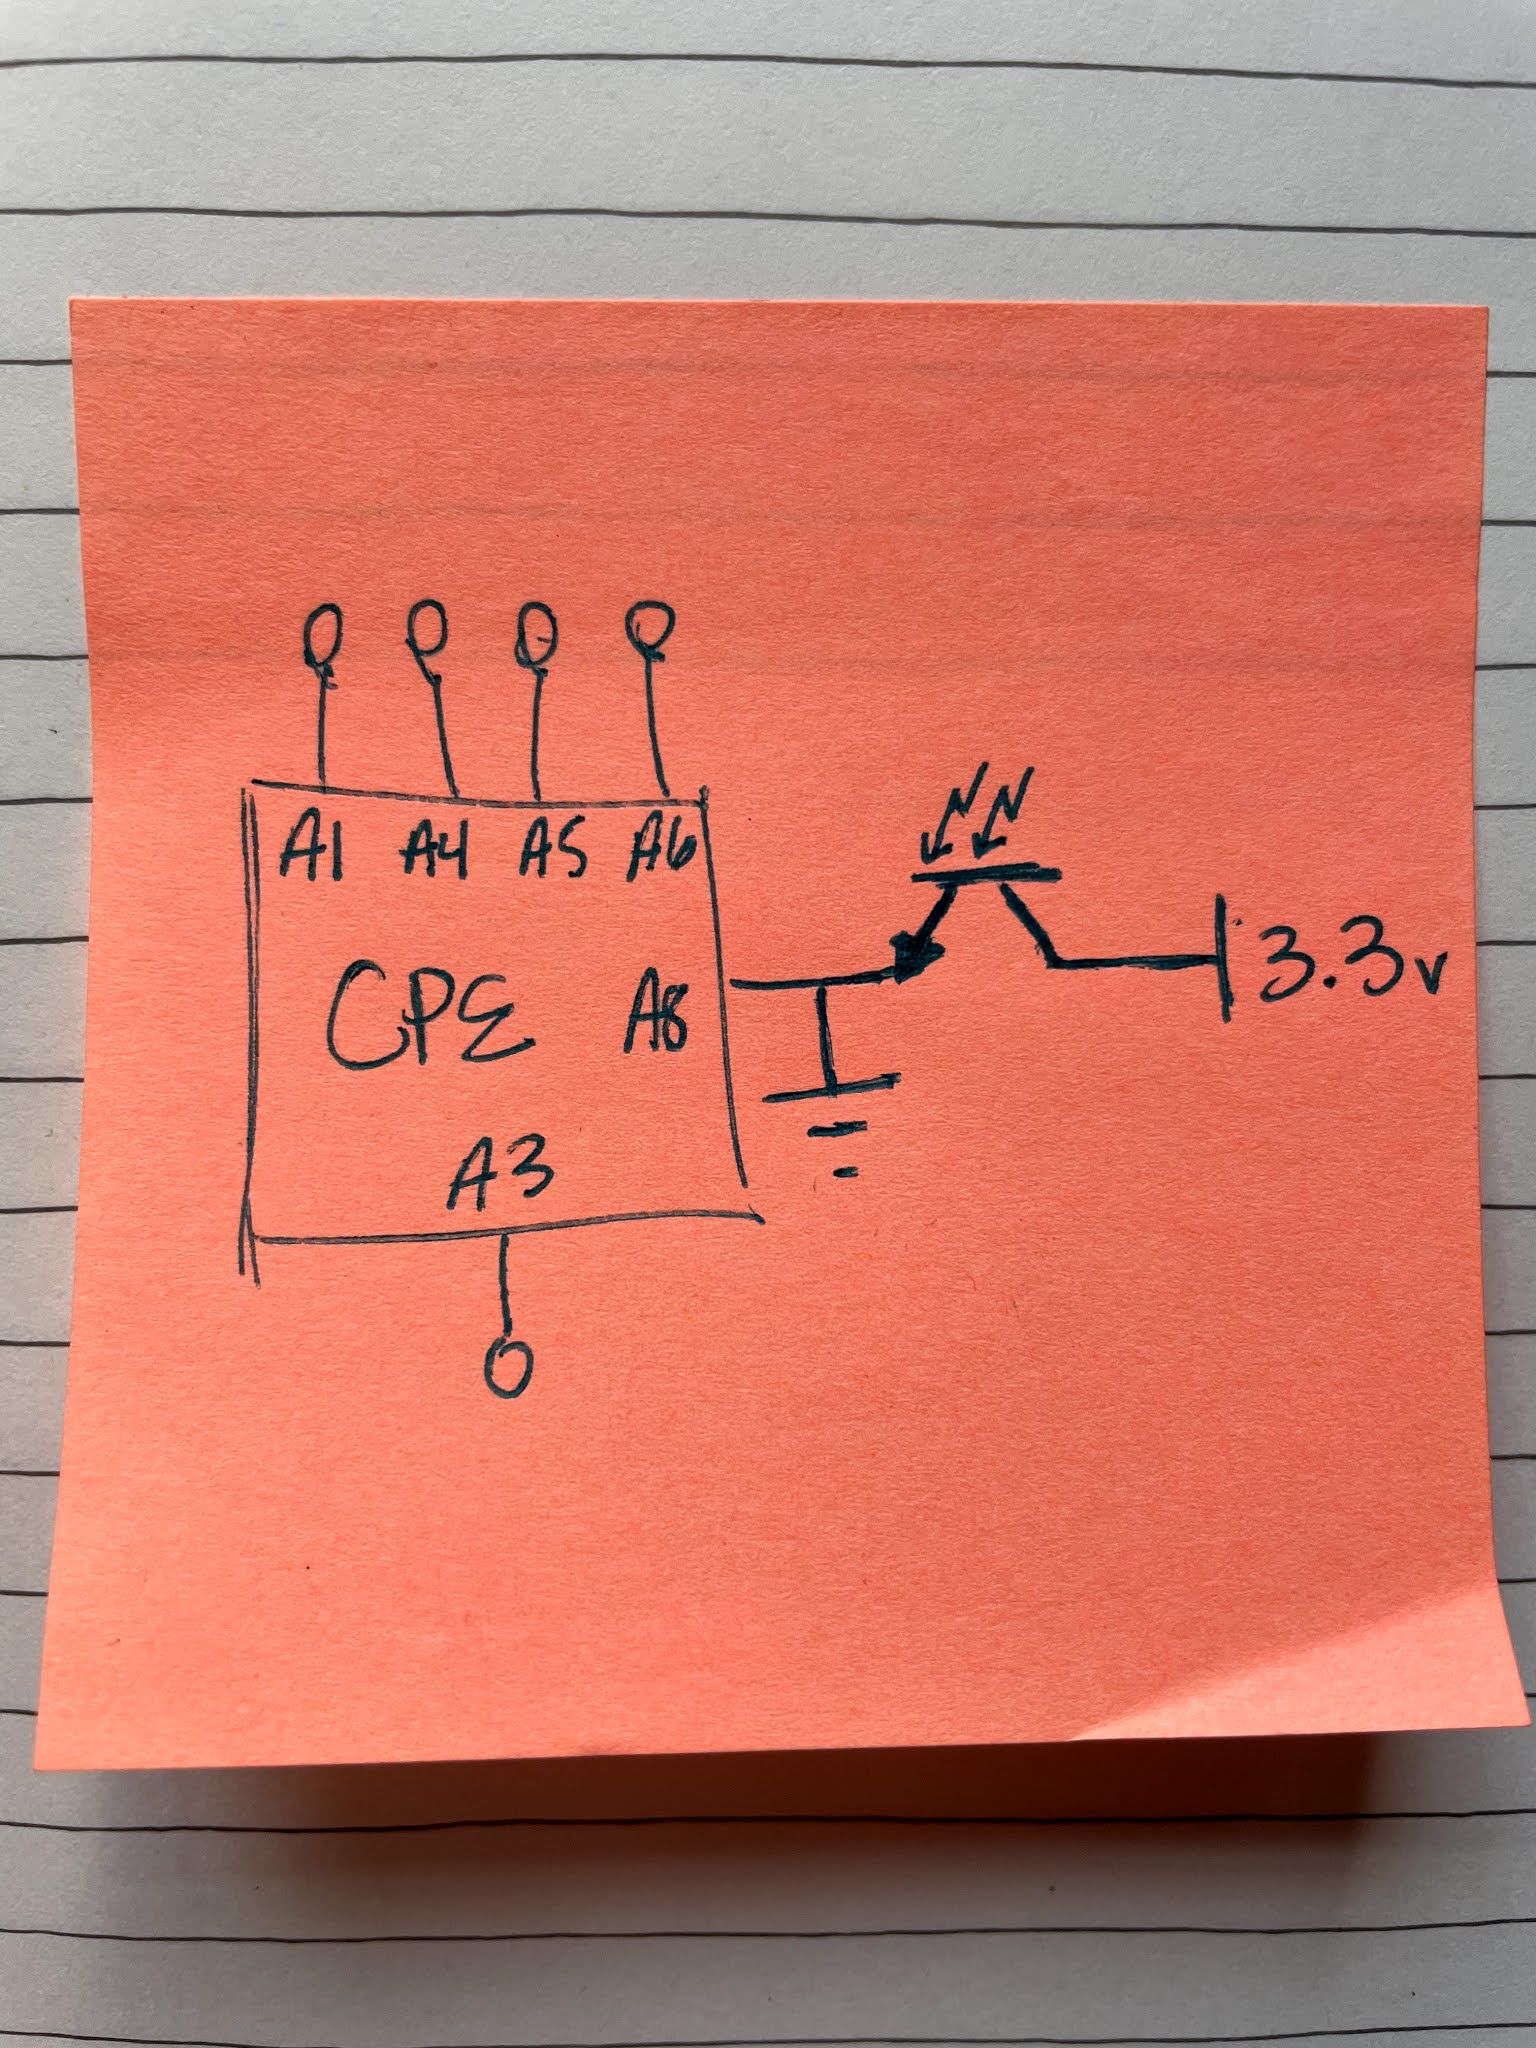 A1 A4 A5 A6
3.3v
CPE A8
A3